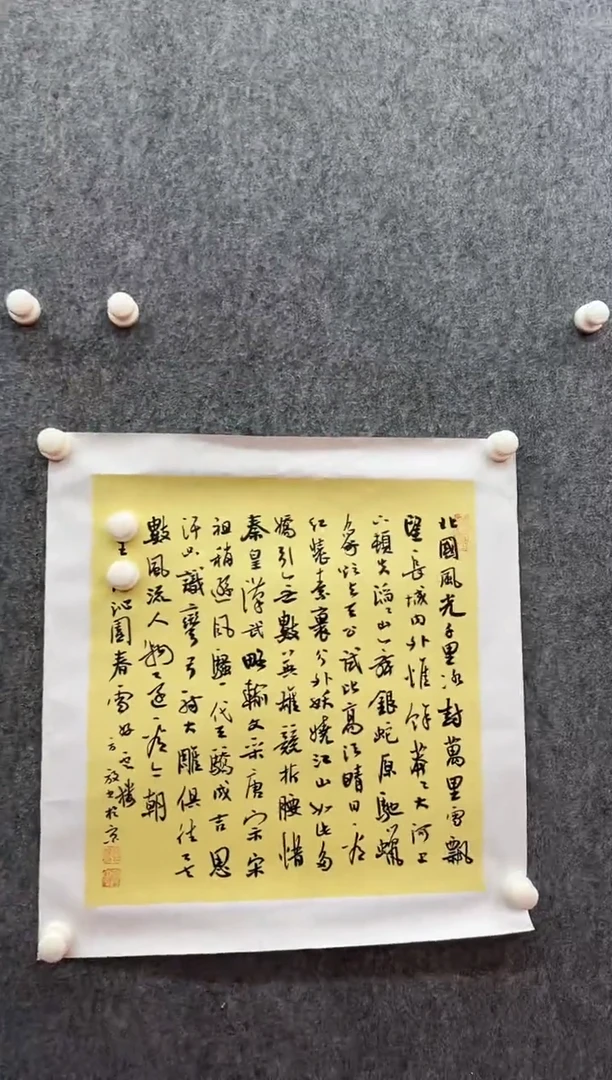 北國風光千里冰封萬里雪飄
望長城內外惟餘莽々大河上
下頓失滔々山舞銀蛇原馳蠟
象欲与天公試比高須晴日看
紅裝素裹分外妖嬈江山如此多
嬌引無數英雄競折腰惜
秦皇漢武略輸文采唐宗宋
祖稍遜風騷一代天驕成吉思
汗只識彎弓射大雕俱往矣
數風流人物還看今朝
沁園春雪
於京